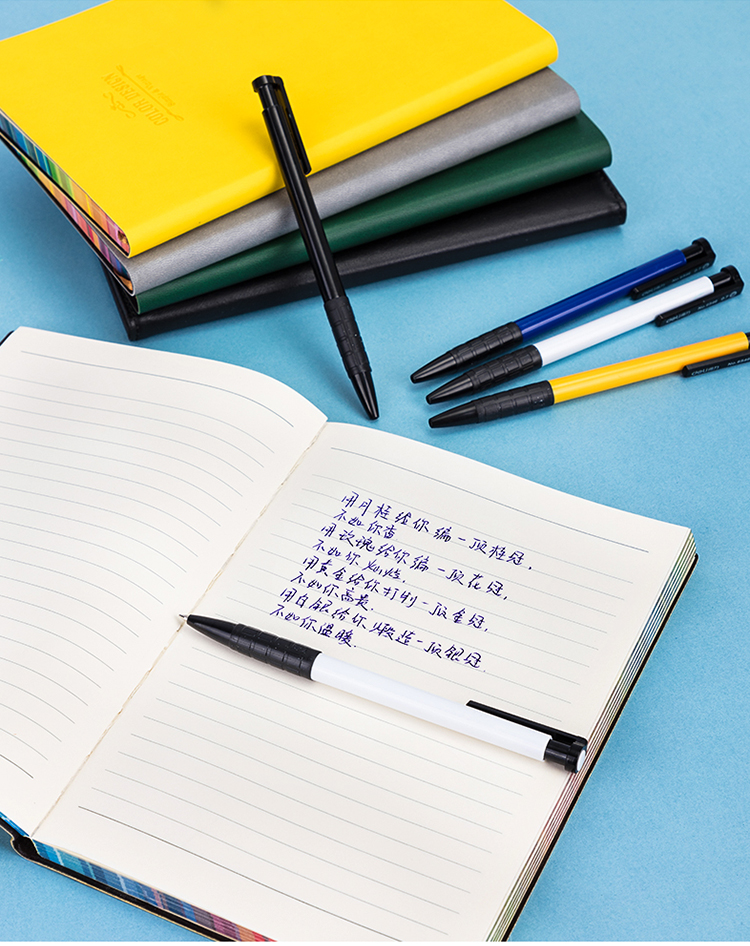 COLOR DESIGN
用月桂给你编一顶桂冠，
不如你香
用玫瑰给你编一顶花冠，
不如你灿烂，
用黄金给你打制一顶金冠，
不如你高贵．
用白银给你煅造一顶银冠
不如你温暖．